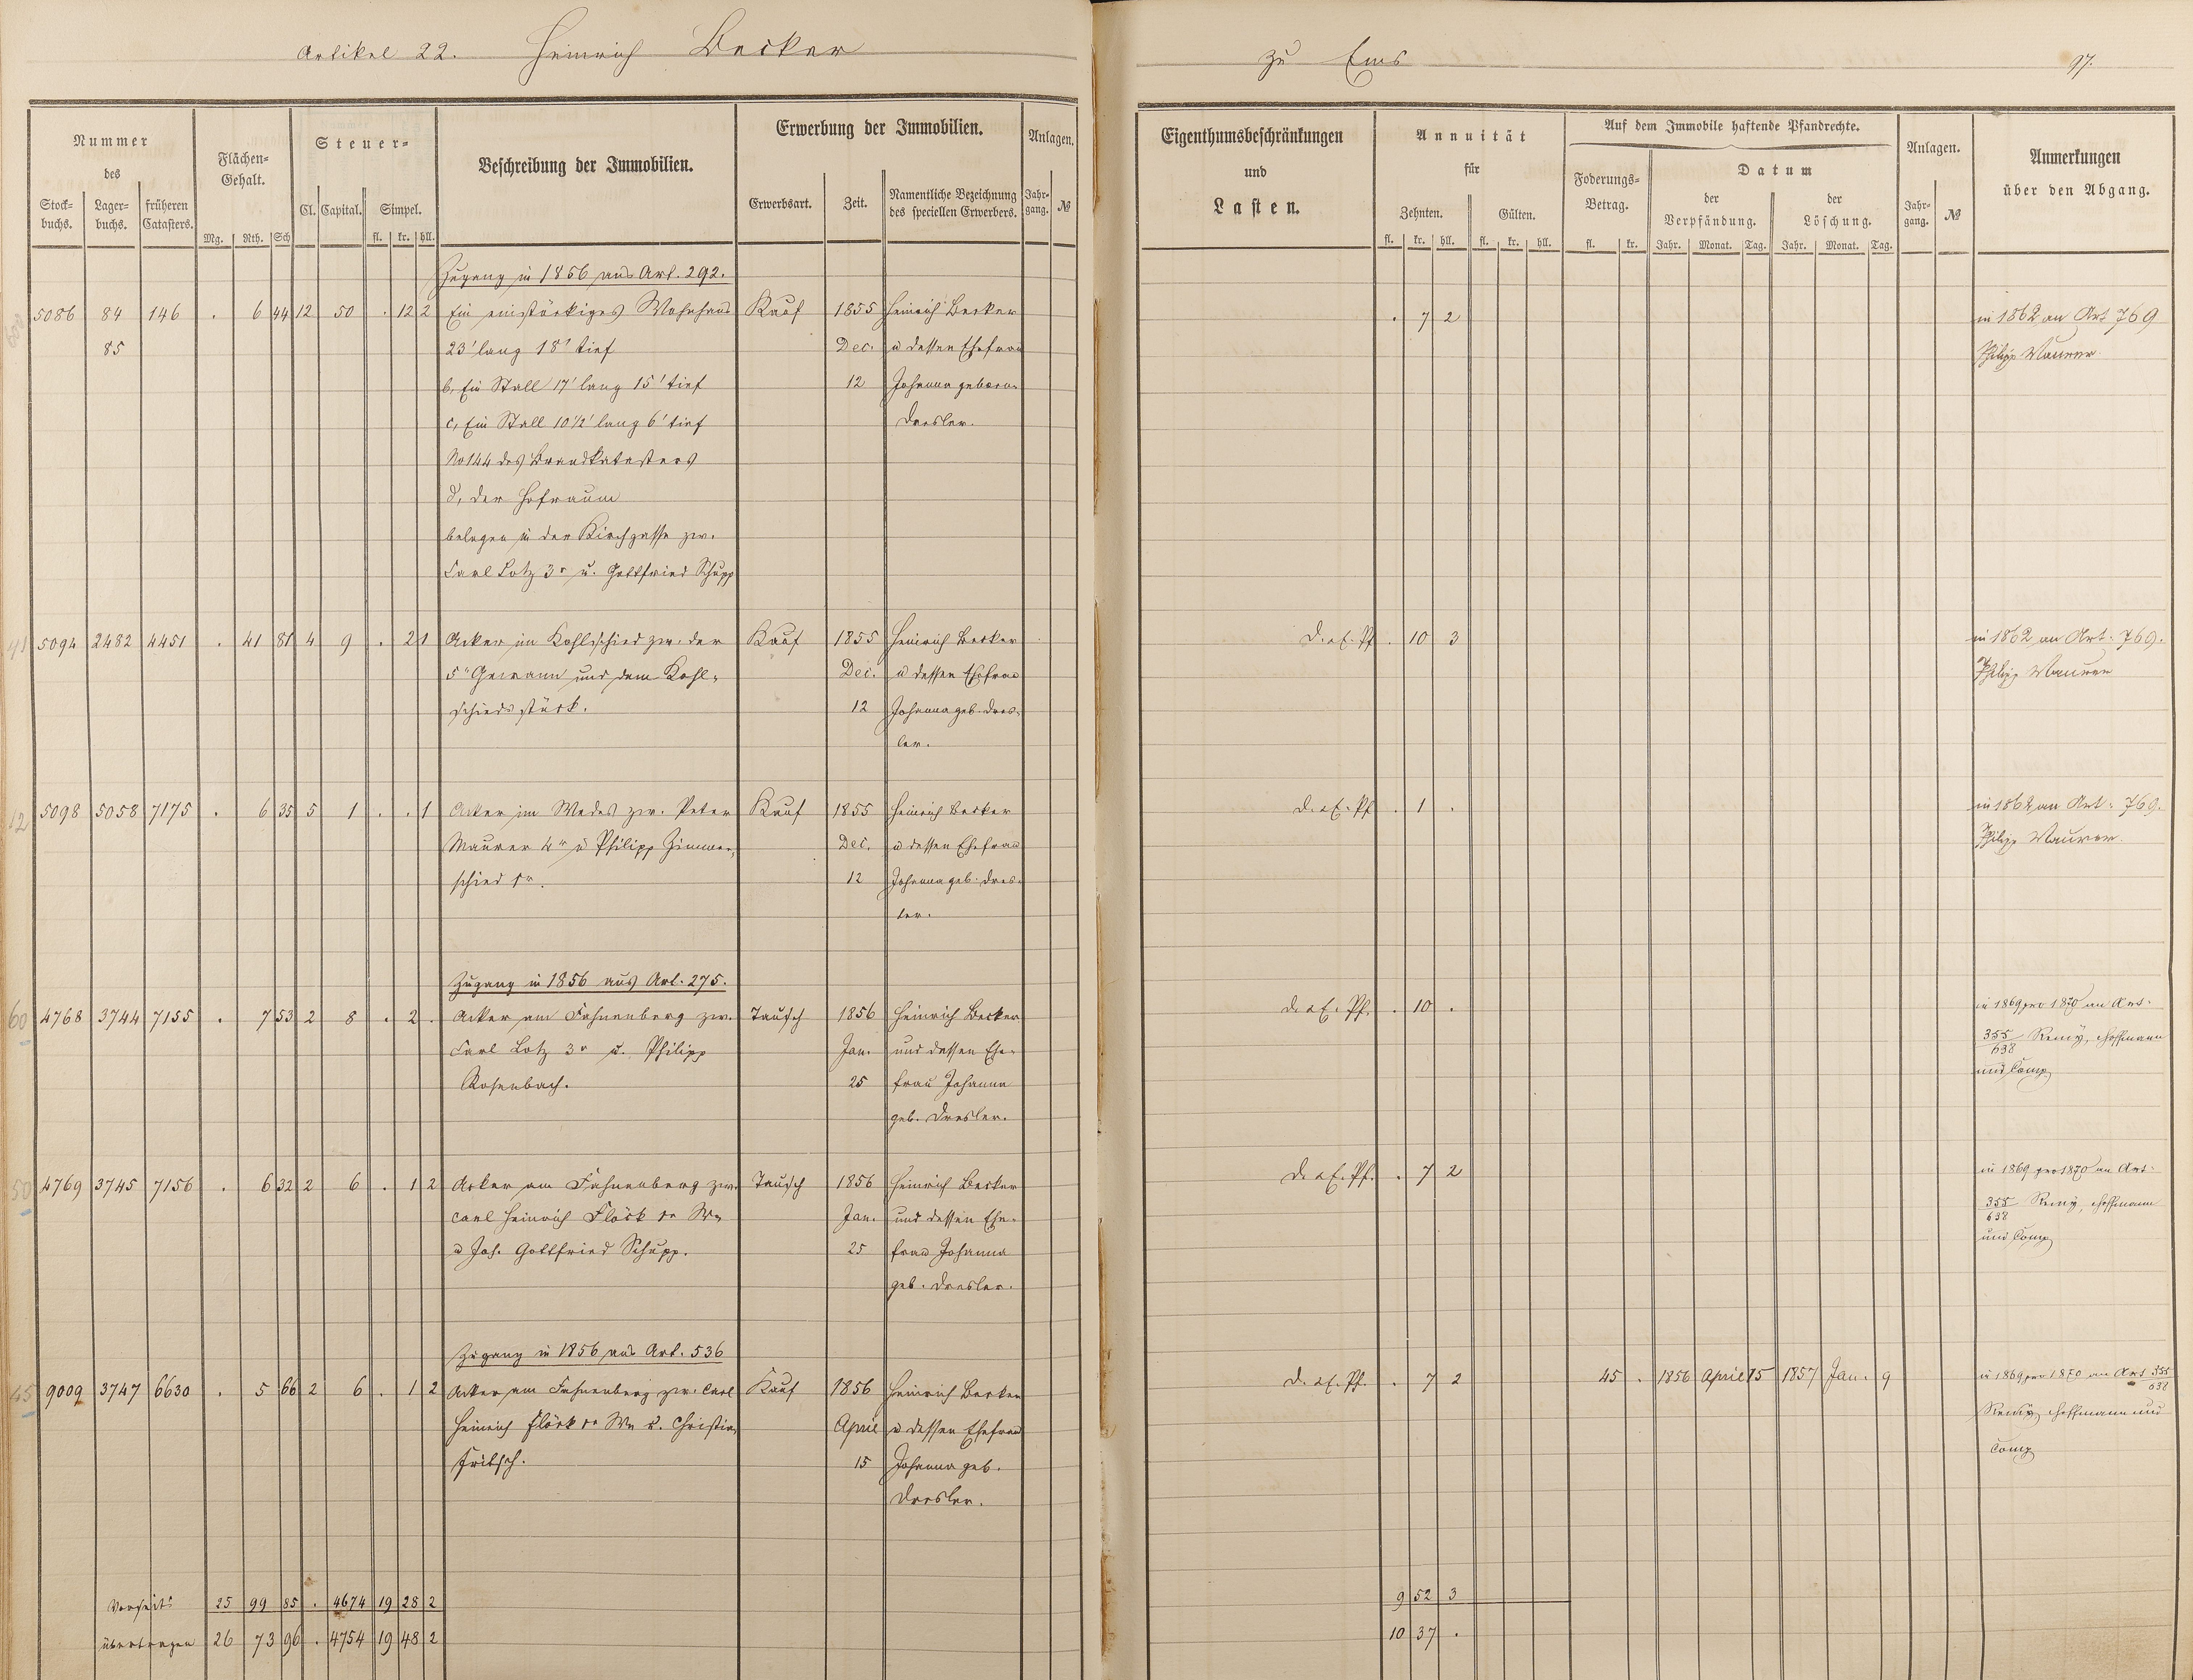 Artikel 22. Heinrich Becker zu Ems 97.
Nummer des
Stock-buchs. Lager-buchs. früheren Catasters.
Flächen-Gehalt.
Mg. Rth. Sch
Steuer-
Cl. Capital. Simpel.
fl. kr. hll.
Beschreibung der Immobilien.
Erwerbung der Immobilien.
Erwerbsart. Zeit. Namentliche Bezeichnung des speciellen Erwerbers.
Anlagen.
Jahr-gang. №
Eigenthumsbeschränkungen und Lasten.
Annuität für
Zehnten. Gülten.
fl. kr. hll. fl. kr. hll.
Auf dem Immobile haftende Pfandrechte.
Foderungs-Betrag. Datum der Verpfändung. der Löschung.
fl. kr. Jahr. Monat. Tag. Jahr. Monat. Tag.
Anlagen.
Jahr-gang. №
Anmerkungen über den Abgang.
Zugang in 1856 aus Art. 292.
5086 84 146 . 6 44 12 50 . 12 2 Ein einstöckiges Wohnhaus Kauf 1855 Heinrich Becker . 7 2 in 1862 an Art 769
85 23' lang 18' tief Dec. u dessen Ehefrau Philipp Maurer
b, Ein Stall 17' lang 15' tief 12 Johanna geborne
c, Ein Stall 10 1/2' lang 6' tief Dresler.
No 144 des Brandkatasters
d, der Hofraum
belegen in der Kirchgasse zw.
Carl Lotz 3r u. Gottfried Schupp
41 5094 2482 4451 . 41 81 4 9 . 2 1 Acker im Kohlschied zw. der Kauf 1855 Heinrich Becker D. a E. Pf . 10 3 in 1862 an Art. 769.
5n Gewann und dem Kohl- Dec. u dessen Ehefrau Philipp Maurer
schiedsstück. 12 Johanna geb. Dres-
ler.
12 5098 5058 7175 . 6 35 5 1 . . 1 Acker im Wedes zw. Peter Kauf 1855 Heinrich Becker D. a E. Pf . 1 . in 1862 an Art. 769.
Maurer u Philipp Zimmer- Dec. u dessen Ehefrau Philipp Maurer.
schied 12 Johanna geb. Dres-
ler.
Zugang in 1856 aus Art. 275.
60 4768 3744 7155 . 7 53 2 8 . 2 . Acker am Fahnenberg zw. Tausch 1856 Heinrich Becker D. a E. Pf. . 10 . in 1869 pro 1870 an Art.
Carl Lotz 3r u. Philipp Jan. und dessen Ehe- 355/638 Remy, Hoffmann
Rosenbach. 25 frau Johanna und Comp
geb. Dresler.
50 4769 3745 7156 . 6 32 2 6 . 1 2 Acker am Fahnenberg zw. Tausch 1856 Heinrich Becker D. a E. Pf. . 7 2 in 1869 pro 1870 an Art.
Carl Heinrich Flöck Jan. und dessen Ehe- 355/638 Remy, Hoffmann
u Joh. Gottfried Schupp. 25 frau Johanna und Comp
geb. Dresler.
Zugang in 1856 aus Art. 536
45 9009 3747 6630 . 5 66 2 6 . 1 2 Acker am Fahnenberg zw. Carl Kauf 1856 Heinrich Becker D. a E. Pf. . 7 2 45 . 1856 April 15 1857 Jan. 9 in 1869 pro 1870 an Art 355/638
Heinrich Flöck u. Christian April u dessen Ehefrau Remy Hoffmann und
Fritsch. 15 Johanna geb. Comp
Dresler.
Vorseits 25 99 85 . 4674 19 28 2 9 52 3
übertragen 26 73 96 . 4754 19 48 2 10 37 .